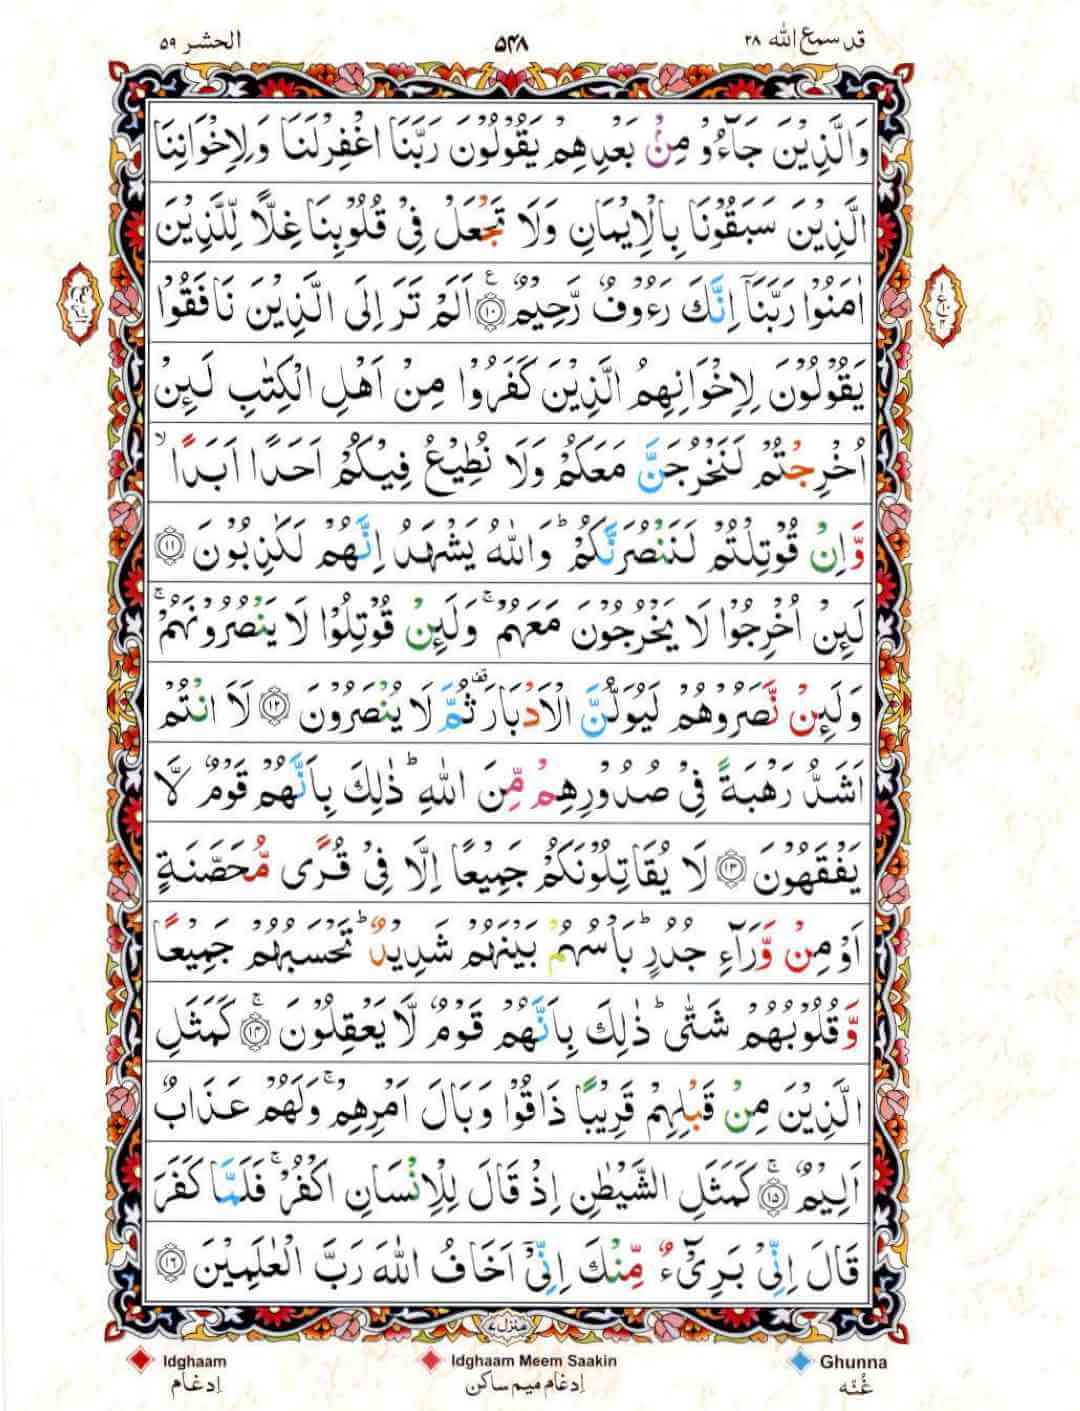 قد سمع الله ۲۸
۵۴۸
الحشر ۵۹
وَالَّذِيْنَ جَآءُوْ مِنْۢ بَعْدِهِمْ يَقُوْلُوْنَ رَبَّنَا اغْفِرْلَنَا وَلِاِخْوَانِنَا
الَّذِيْنَ سَبَقُوْنَا بِالْاِيْمَانِ وَلَا تَجْعَلْ فِيْ قُلُوْبِنَا غِلًّا لِّلَّذِيْنَ
اٰمَنُوْا رَبَّنَاۤ اِنَّكَ رَءُوْفٌ رَّحِيْمٌ ۱۰ اَلَمْ تَرَ اِلَى الَّذِيْنَ نَافَقُوْا
يَقُوْلُوْنَ لِاِخْوَانِهِمُ الَّذِيْنَ كَفَرُوْا مِنْ اَهْلِ الْكِتٰبِ لَىِٕنْ
اُخْرِجْتُمْ لَنَخْرُجَنَّ مَعَكُمْ وَلَا نُطِيْعُ فِيْكُمْ اَحَدًا اَبَدًا ۙ
وَّاِنْ قُوْتِلْتُمْ لَنَنْصُرَنَّكُمْ ؕ وَاللّٰهُ يَشْهَدُ اِنَّهُمْ لَكٰذِبُوْنَ ۱۱
لَىِٕنْ اُخْرِجُوْا لَا يَخْرُجُوْنَ مَعَهُمْ ۚ وَلَىِٕنْ قُوْتِلُوْا لَا يَنْصُرُوْنَهُمْ ۚ
وَلَىِٕنْ نَّصَرُوْهُمْ لَيُوَلُّنَّ الْاَدْبَارَ ۫ ثُمَّ لَا يُنْصَرُوْنَ ۱۲ لَا اَنْتُمْ
اَشَدُّ رَهْبَةً فِيْ صُدُوْرِهِمْ مِّنَ اللّٰهِ ؕ ذٰلِكَ بِاَنَّهُمْ قَوْمٌ لَّا
يَفْقَهُوْنَ ۱۳ لَا يُقَاتِلُوْنَكُمْ جَمِيْعًا اِلَّا فِيْ قُرًى مُّحَصَّنَةٍ
اَوْ مِنْ وَّرَآءِ جُدُرٍ ؕ بَاْسُهُمْ بَيْنَهُمْ شَدِيْدٌ ؕ تَحْسَبُهُمْ جَمِيْعًا
وَّقُلُوْبُهُمْ شَتّٰى ؕ ذٰلِكَ بِاَنَّهُمْ قَوْمٌ لَّا يَعْقِلُوْنَ ۱۴ ۚ كَمَثَلِ
الَّذِيْنَ مِنْ قَبْلِهِمْ قَرِيْبًا ذَاقُوْا وَبَالَ اَمْرِهِمْ ۚ وَلَهُمْ عَذَابٌ
اَلِيْمٌ ۱۵ ۚ كَمَثَلِ الشَّيْطٰنِ اِذْ قَالَ لِلْاِنْسَانِ اكْفُرْ ۚ فَلَمَّا كَفَرَ
قَالَ اِنِّيْ بَرِيْٓءٌ مِّنْكَ اِنِّيْٓ اَخَافُ اللّٰهَ رَبَّ الْعٰلَمِيْنَ ۱۶
منزل ۷
Idghaam Idghaam Meem Saakin Ghunna
اِدغام اِدغام میم ساکن غُنّه